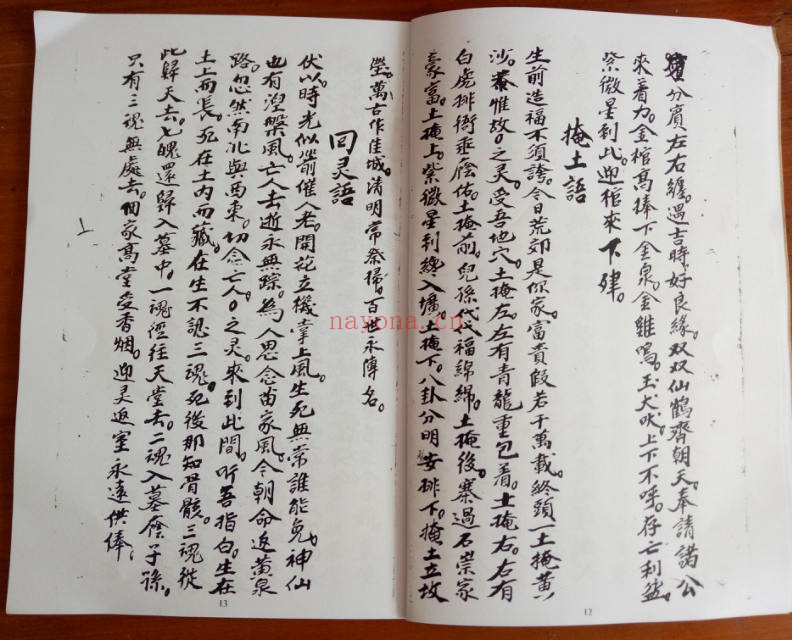 分賓左右纏。遇吉時好良緣。双双仙鶴齊朝天。奉請諸公
來着力。金棺髙捧下金泉。金雞鳴。玉犬吠。上下不呼。存亡利益。
紫微星到此。迎棺來下肂。
掩土語
生前造福不須誇。今日荒郊是你家。富貴假若千萬載。終頭一土掩黄
沙。惟故〇之灵。受吾地穴。土掩左。左有青龍重包着。土掩右。右有
白虎排衙乖廕佑。土掩前。兒孫代〻福綿綿。土掩後。寨過石崇家
豪富。土掩上。紫微星到纔入壙。土掩下。八卦分明安排下。掩土立坟
塋。萬古作佳城。清明常祭掃。百世永傳名。
回灵語
伏以時光似箭催人老。開花立機掌上風。生死無常誰能免。神仙
也有涅槃風。亡人去逝永無踪。為人思念苗家風。今朝命返黄泉
路。忽然南北與西東。切念亡人〇之灵。來到此間。听吾指白。生在
土上而長。死在土内而藏。在生不認三魂。死後那知骨骸。三魂從
此歸天去。七魄還歸入墓中。一魂徑往天堂去。二魂入墓廕子孫。
只有三魂無處去。個家髙堂受香烟。迎灵返室永遠供俸。
13
12
nayona.cn